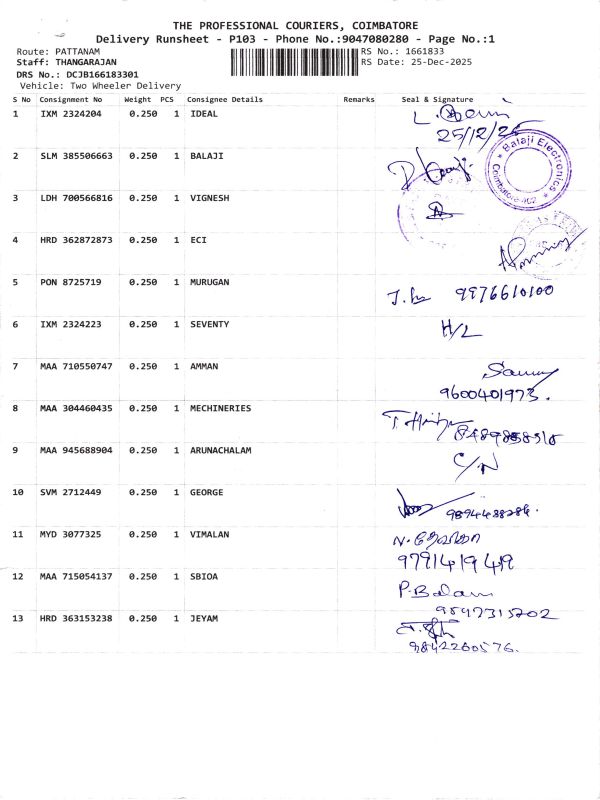 THE PROFESSIONAL COURIERS, COIMBATORE
Delivery Runsheet - P103 - Phone No.:9047080280 - Page No.:1
Route: PATTANAM
Staff: THANGARAJAN
DRS No.: DCJB166183301
Vehicle: Two Wheeler Delivery
RS No.: 1661833
RS Date: 25-Dec-2025
S No Consignment No Weight PCS Consignee Details Remarks Seal & Signature
1 IXM 2324204 0.250 1 IDEAL
25/12/25
2 SLM 385506663 0.250 1 BALAJI
Balaji Electronics
Coimbatore-402
3 LDH 700566816 0.250 1 VIGNESH
4 HRD 362872873 0.250 1 ECI
5 PON 8725719 0.250 1 MURUGAN 9976610100
6 IXM 2324223 0.250 1 SEVENTY H/L
7 MAA 710550747 0.250 1 AMMAN
9600401973.
8 MAA 304460435 0.250 1 MECHINERIES
9 MAA 945688904 0.250 1 ARUNACHALAM C/N
10 SVM 2712449 0.250 1 GEORGE
9894488286.
11 MYD 3077325 0.250 1 VIMALAN
9791419419
12 MAA 715054137 0.250 1 SBIOA P.Balam
13 HRD 363153238 0.250 1 JEYAM
9842260576.